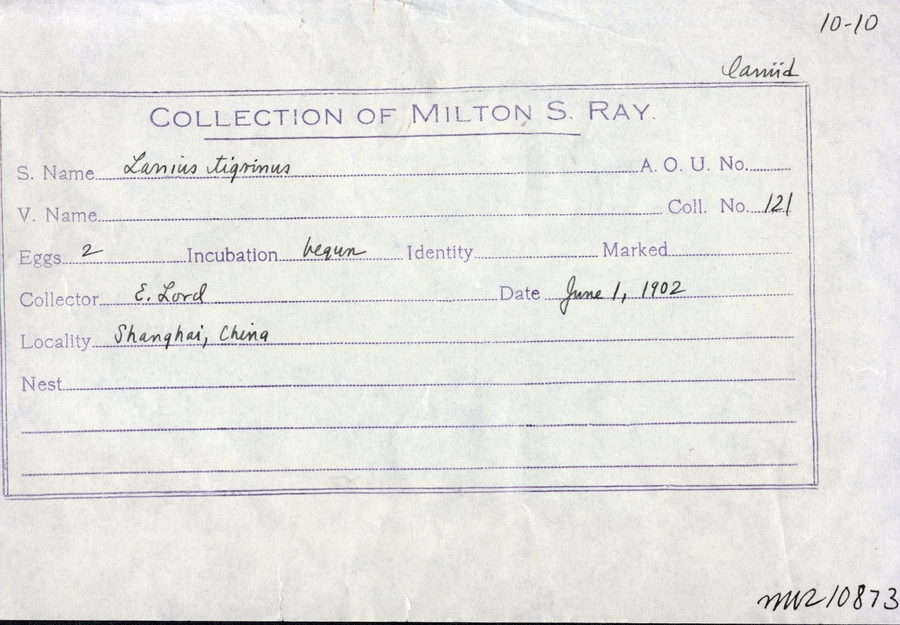 10-10
Laniid
COLLECTION OF MILTON S. RAY.
S. Name Lanius tigrinus A. O. U. No.
V. Name Coll. No. 121
Eggs 2 Incubation begun Identity Marked
Collector E. Lord Date June 1, 1902
Locality Shanghai, China
Nest
10873